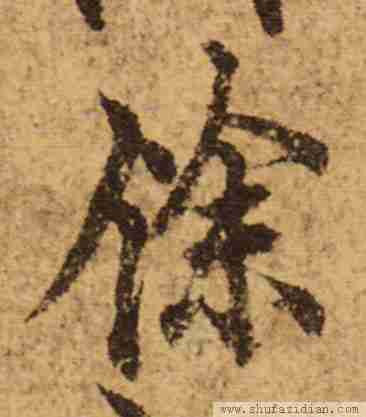 徐
www.shufazidian.com